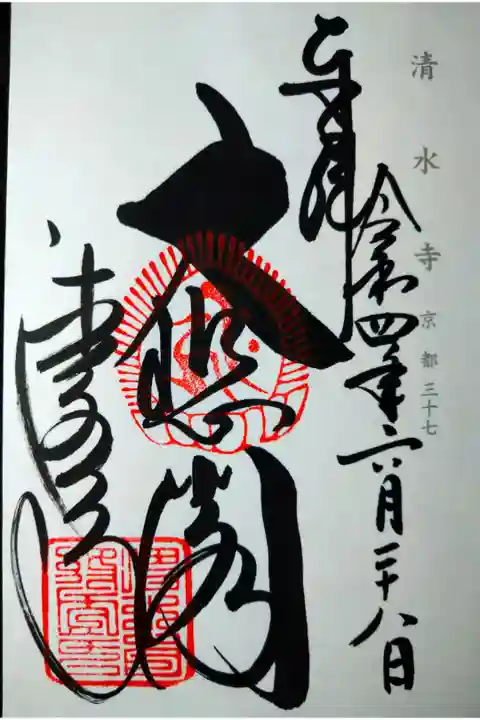 清水寺 京都三十七
奉拝 令和四年六月二十八日
大悲閣
清水寺